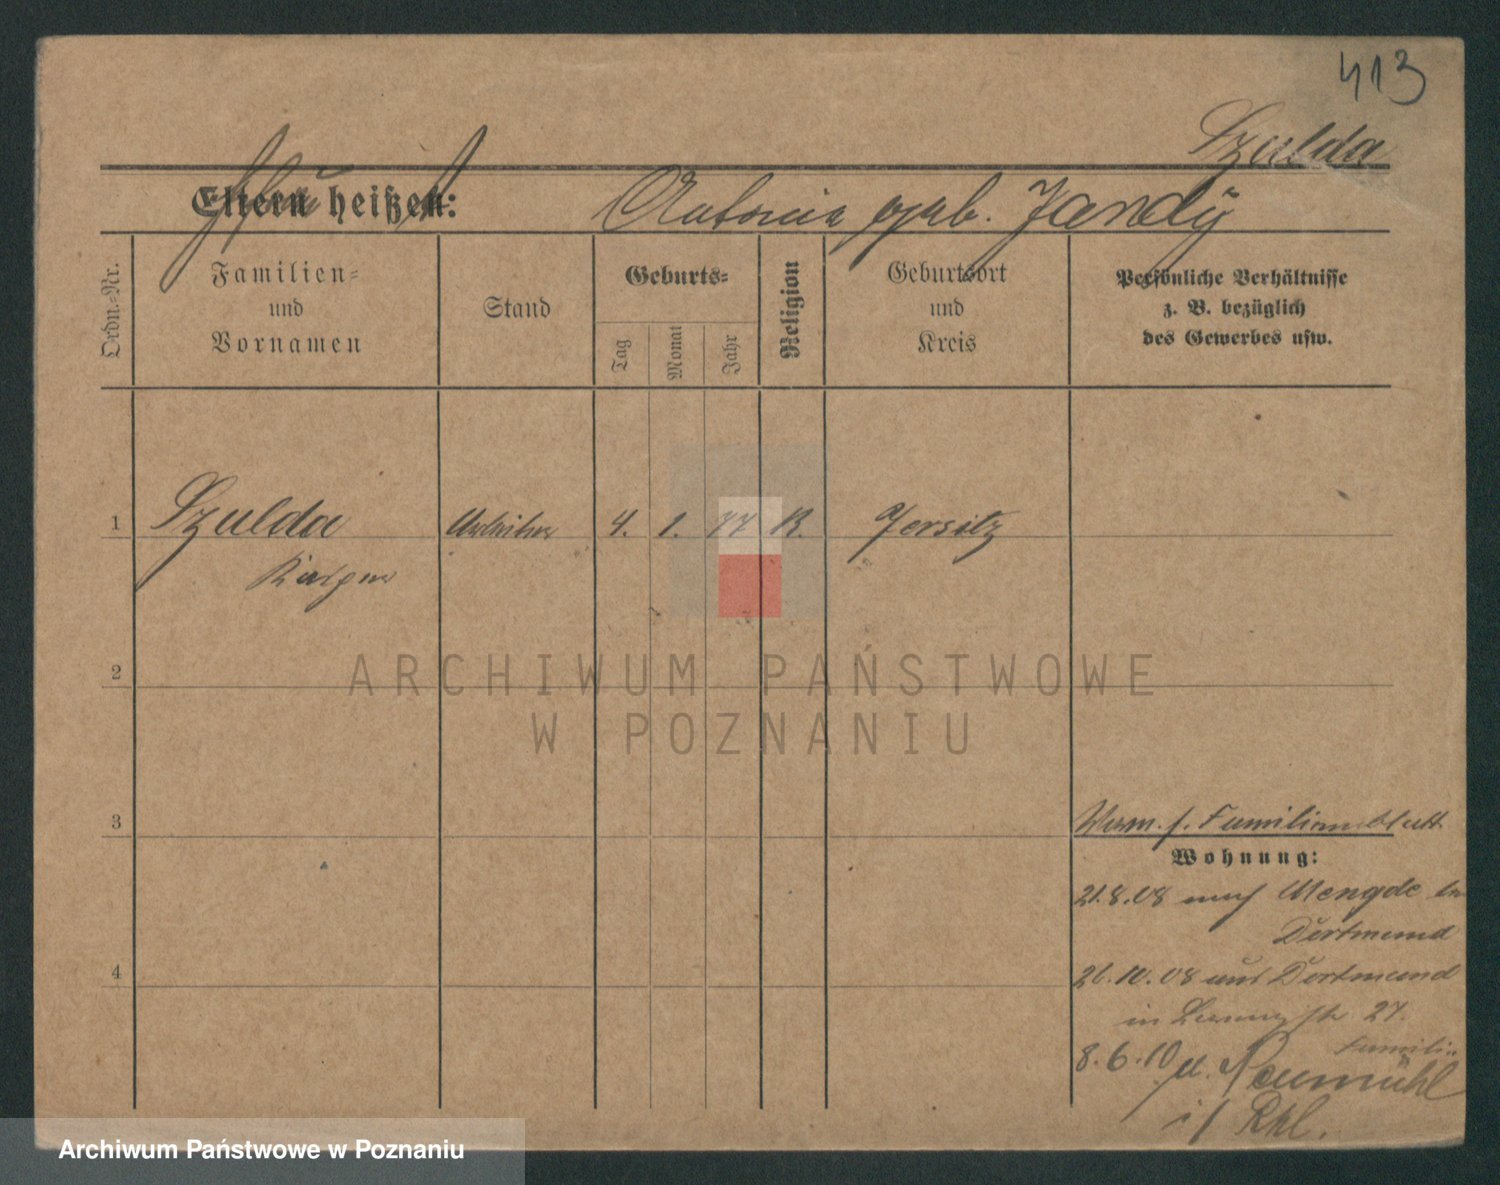 413
Szulda
Eltern heißen: Antonie geb. Jandÿ
Ordn.-Nr.
Familien-
und
Vornamen
Stand
Geburts-
Tag
Monat
Jahr
Religion
Geburtsort
und
Kreis
Persönliche Verhältnisse
z. B. bezüglich
des Gewerbes usw.
1 Szulda Arbeiter 4. 1. 77 K. Jersitz
Kasper
2
ARCHIWUM PAŃSTWOWE
W POZNANIU
3
Verm. s. Familienblatt
Wohnung:
21.8.08 nach Mengde
Dortmund
4
26.10.08 aus Dortmund
in str. 27.
8.6.10 n. Neumühl
Familie
i/ Rhl.
Archiwum Państwowe w Poznaniu